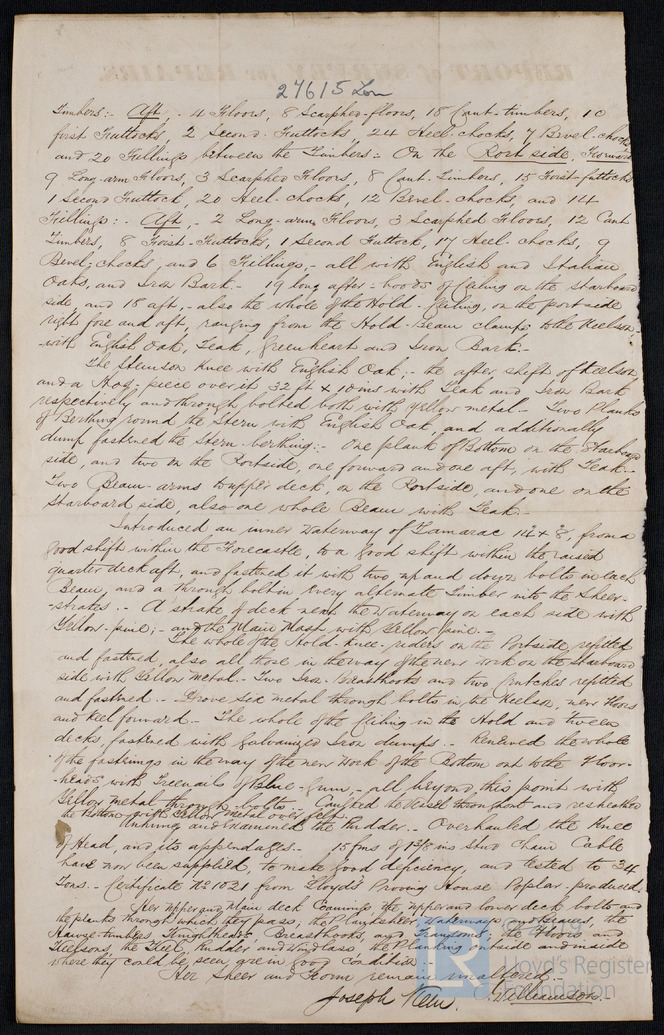 REPORT of SURVEY for REPAIRS.
27615 Lon
Timbers:- Aft, - 4 Floors, 8 Scarphed-floors, 18 Cant-timbers, 10
first Futtocks, 2 Second Futtocks, 24 Heel-chocks, 7 Bevel-chocks
and 20 Fillings between the Timbers:- On the Port side, Forward
9 Long-arm Floors, 3 Scarphed Floors, 8 Cant-Timbers, 15 Foist-futtocks
1 Second Futtock, 20 Heel-chocks, 12 Bevel-chocks, and 14
Fillings:- Aft, - 2 Long-arm Floors, 3 Scarphed Floors, 12 Cant
Timbers, 8 Foist-Futtocks, 1 Second Futtock, 17 Heel-chocks, 9
Bevel-chocks, and 6 Fillings, - all with English and Italian
Oaks, and Iron Bark.- 19 long after-hoods of Ceiling on the Starboard
side, and 18 aft, - also the whole of the Hold-Ceiling, on the port side
right fore and aft, ranging from the Hold-beam clamps to the Keelson,
-with English Oak, Teak, Greenheart and Iron Bark.-
The Stemson Knee with English Oak:- the after shift of Keelson
and a Hog-piece over it 32 ft x 10 ins with Teak and Iron Bark
respectively and through bolted both with yellow metal.- Two Planks
of Berthing round the Stern with English Oak, and additionally
dump fastened the Stern-berthing:- One plank of Bottom on the Starboard
side, and two on the Portside, one forward and one aft, with Teak.-
Two Beam-arms to upper deck, on the Portside, and one on the
Starboard side, also one whole Beam with Teak.-
Introduced an inner Waterway of Tamarac 14 x 8, from a
good shift within the Forecastle, to a good shift within the raised
quarter deck aft, and fastened it with two up and down bolts in each
Beam, and a through bolt in every alternate Timber into the Sheer-
-strakes.- A strake of deck next the Waterway on each side with
Yellow-pine;- and the Main Mast with Yellow pine.-
The whole of the Hold-Knee-riders on the Portside refitted
and fastened, also all those in the way of the new work on the Starboard
side with Yellow Metal.- Two Iron Breasthooks and two Crutches refitted
and fastened.- Drove six metal through bolts in the Keelson, new Floors
and Keel forward.- The whole of the Ceiling in the Hold and tween
decks, fastened with Galvanized Iron dumps.- Renewed the whole
of the fastenings in the way of the new work of the Bottom out to the Floor-
-heads with Treenails of Blue-Gum, - all beyond this point with
Yellow metal through-bolts.- Caulked the Vessel throughout and resheathed
the Bottom with Yellow Metal over felt.-
Unhung and examined the Rudder.- Overhauled the Knee
of Head, and its appendages.- 15 fms of 1 3/8 ins Stud Chain Cable
have now been supplied, to make good deficiency, and tested to 34
Tons.- Certificate No 1021 from Lloyd's Proving House Poplar-produced.
Her Upper and Main deck Comings, the upper and lower deck bolts and
the planks through which they pass, the Planksheer, Waterways and Beams, the
Hawse-timbers, Knightheads, Breasthooks, and Transoms, the Floors and
Keelsons, the Keel, Rudder and Windlass the Planking outside and inside
where they could be seen, are in good condition.-
Her Sheer and Form remain unaltered.-
Joseph Keen. Williamson.-
LR
Lloyd's Register
Foundation